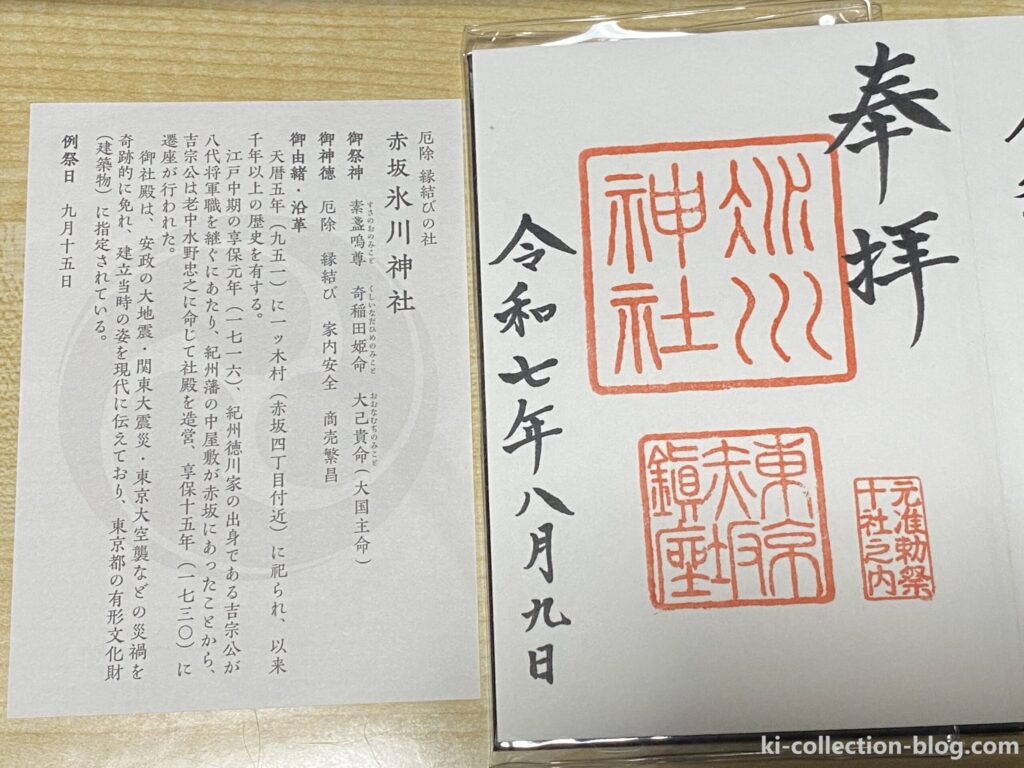 厄除 縁結びの社
赤坂氷川神社
御祭神 素盞嗚尊 奇稲田姫命 大己貴命(大国主命)
すさのおのみこと くしいなだひめのみこと おおなむぢのみこと
御神徳 厄除 縁結び 家内安全 商売繁昌
御由緒・沿革
天暦五年(九五一)に一ッ木村(赤坂四丁目付近)に祀られ、以来
千年以上の歴史を有する。
江戸中期の享保元年(一七一六)、紀州徳川家の出身である吉宗公が
八代将軍職を継ぐにあたり、紀州藩の中屋敷が赤坂にあったことから、
吉宗公は老中水野忠之に命じて社殿を造営、享保十五年(一七三〇)に
遷座が行われた。
御社殿は、安政の大地震・関東大震災・東京大空襲などの災禍を
奇跡的に免れ、建立当時の姿を現代に伝えており、東京都の有形文化財
(建築物)に指定されている。
例祭日 九月十五日
奉拝
元准勅祭
十社之内
氷川
神社
東京
赤坂
鎮座
令和七年八月九日
ki-collection-blog.com